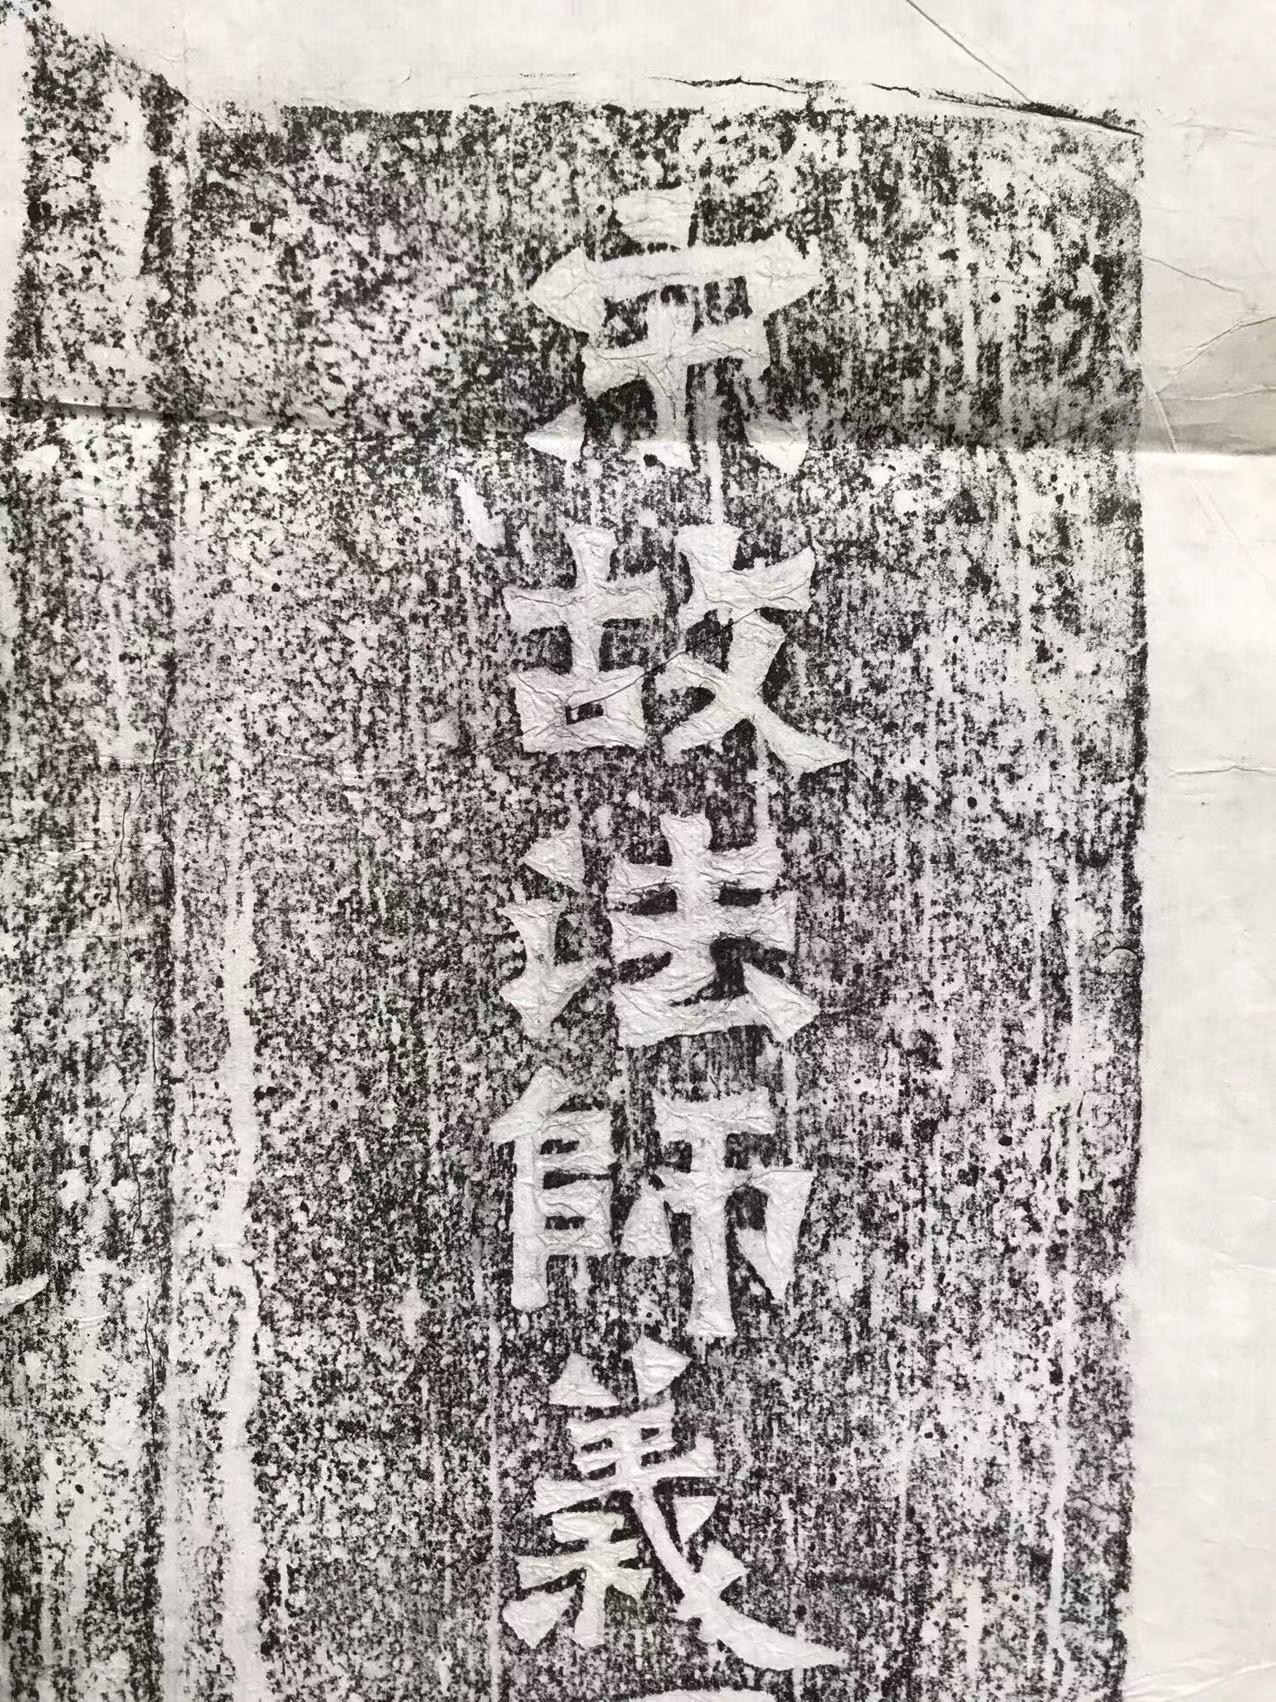 宗故法師義